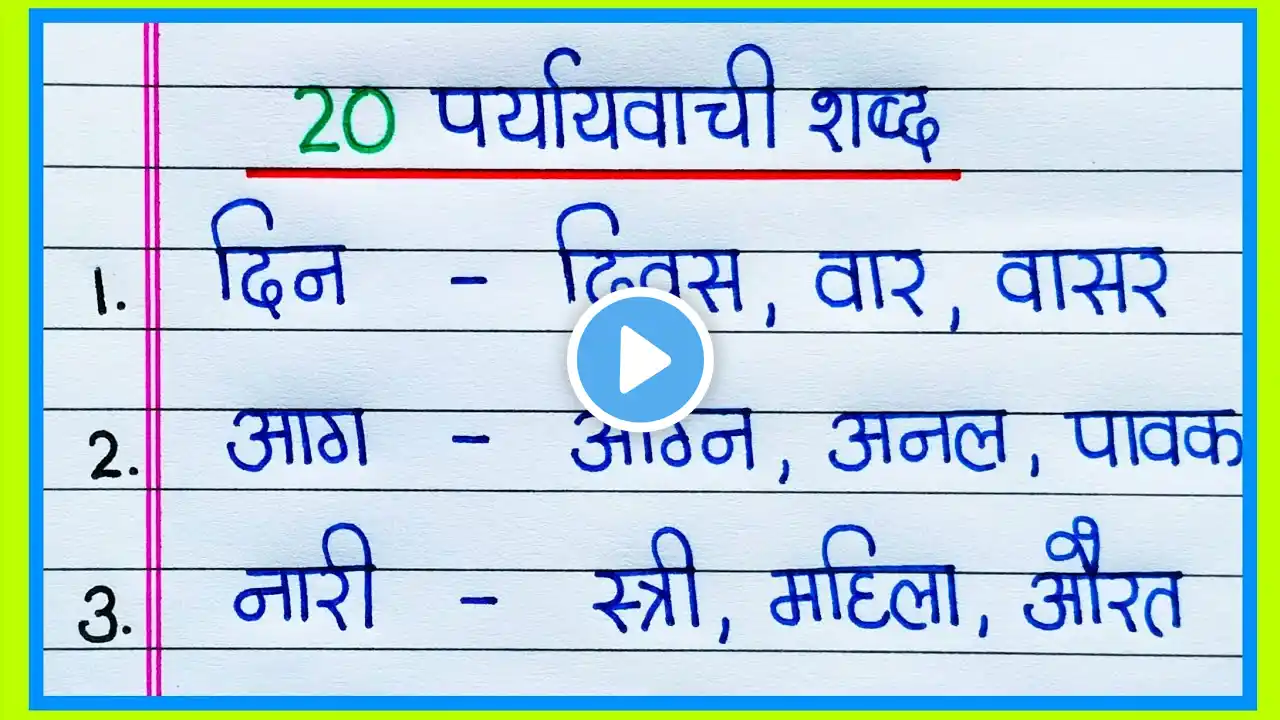 20 पर्यायवाची शब्द
1. दिन - दिवस, वार, वासर
2. आग - अग्नि, अनल, पावक
3. नारी - स्त्री, महिला, औरत